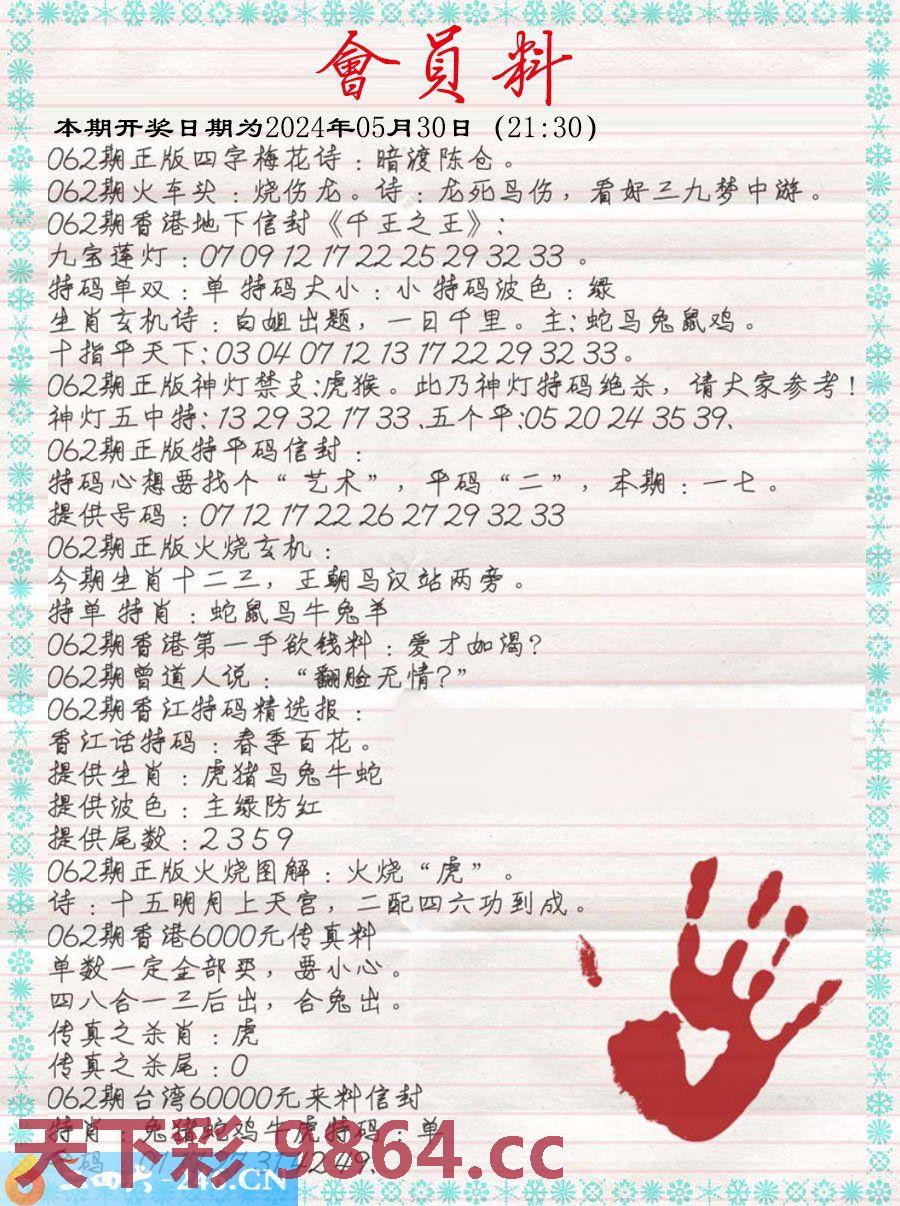 會員料
本期开奖日期为2024年05月30日（21:30）
062期正版四字梅花诗：暗渡陈仓。
062期火车头：烧伤龙。诗：龙死鸟伤，看好三九梦中游。
062期香港地下信封《千王之王》：
九宝莲灯：07 09 12 17 22 25 29 32 33 。
特码单双：单 特码大小：小 特码波色：绿
生肖玄机诗：白姐出题，一日千里。主：蛇马兔鼠鸡。
十指平天下：03 04 07 12 13 17 22 29 32 33。
062期正版神灯禁支：虎猴。此乃神灯特码绝杀，请大家参考！
神灯五中特：13 29 32 17 33 .五个平：05 20 24 35 39、
062期正版特平码信封：
特码心想要找个“艺术”，平码“二”，本期：一七。
提供号码：07 12 17 22 26 27 29 32 33
062期正版火烧玄机：
今期生肖十二三，王朝马汉站两旁。
特单 特肖：蛇鼠马牛兔羊
062期香港第一手欲钱料：爱才如渴？
062期曾道人说：“翻脸无情？”
062期香江特码精选报：
香江话特码：春季百花。
提供生肖：虎猪马兔牛蛇
提供波色：主绿防红
提供尾数：2 3 5 9
062期正版火烧图解：火烧“虎”。
诗：十五明月上天宫，二配四六功到成。
062期香港6000元传真料
单数一定全部买，要小心。
四八合一三后出，合兔出。
传真之杀肖：虎
传真之杀尾：0
062期台湾60000元来料信封
特肖：兔猪蛇鸡牛虎特码：单
42 49、
天下彩 9864.cc
-246.CN